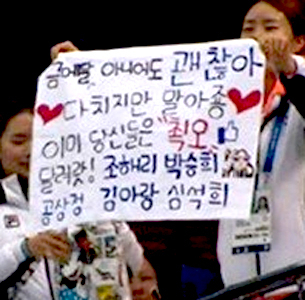 금메달 아니어도 괜찮아
다치지만 말아죵
이미 당신들은 "최오"
달려랏! 조해리 박승희
공상정 김아랑 심석희